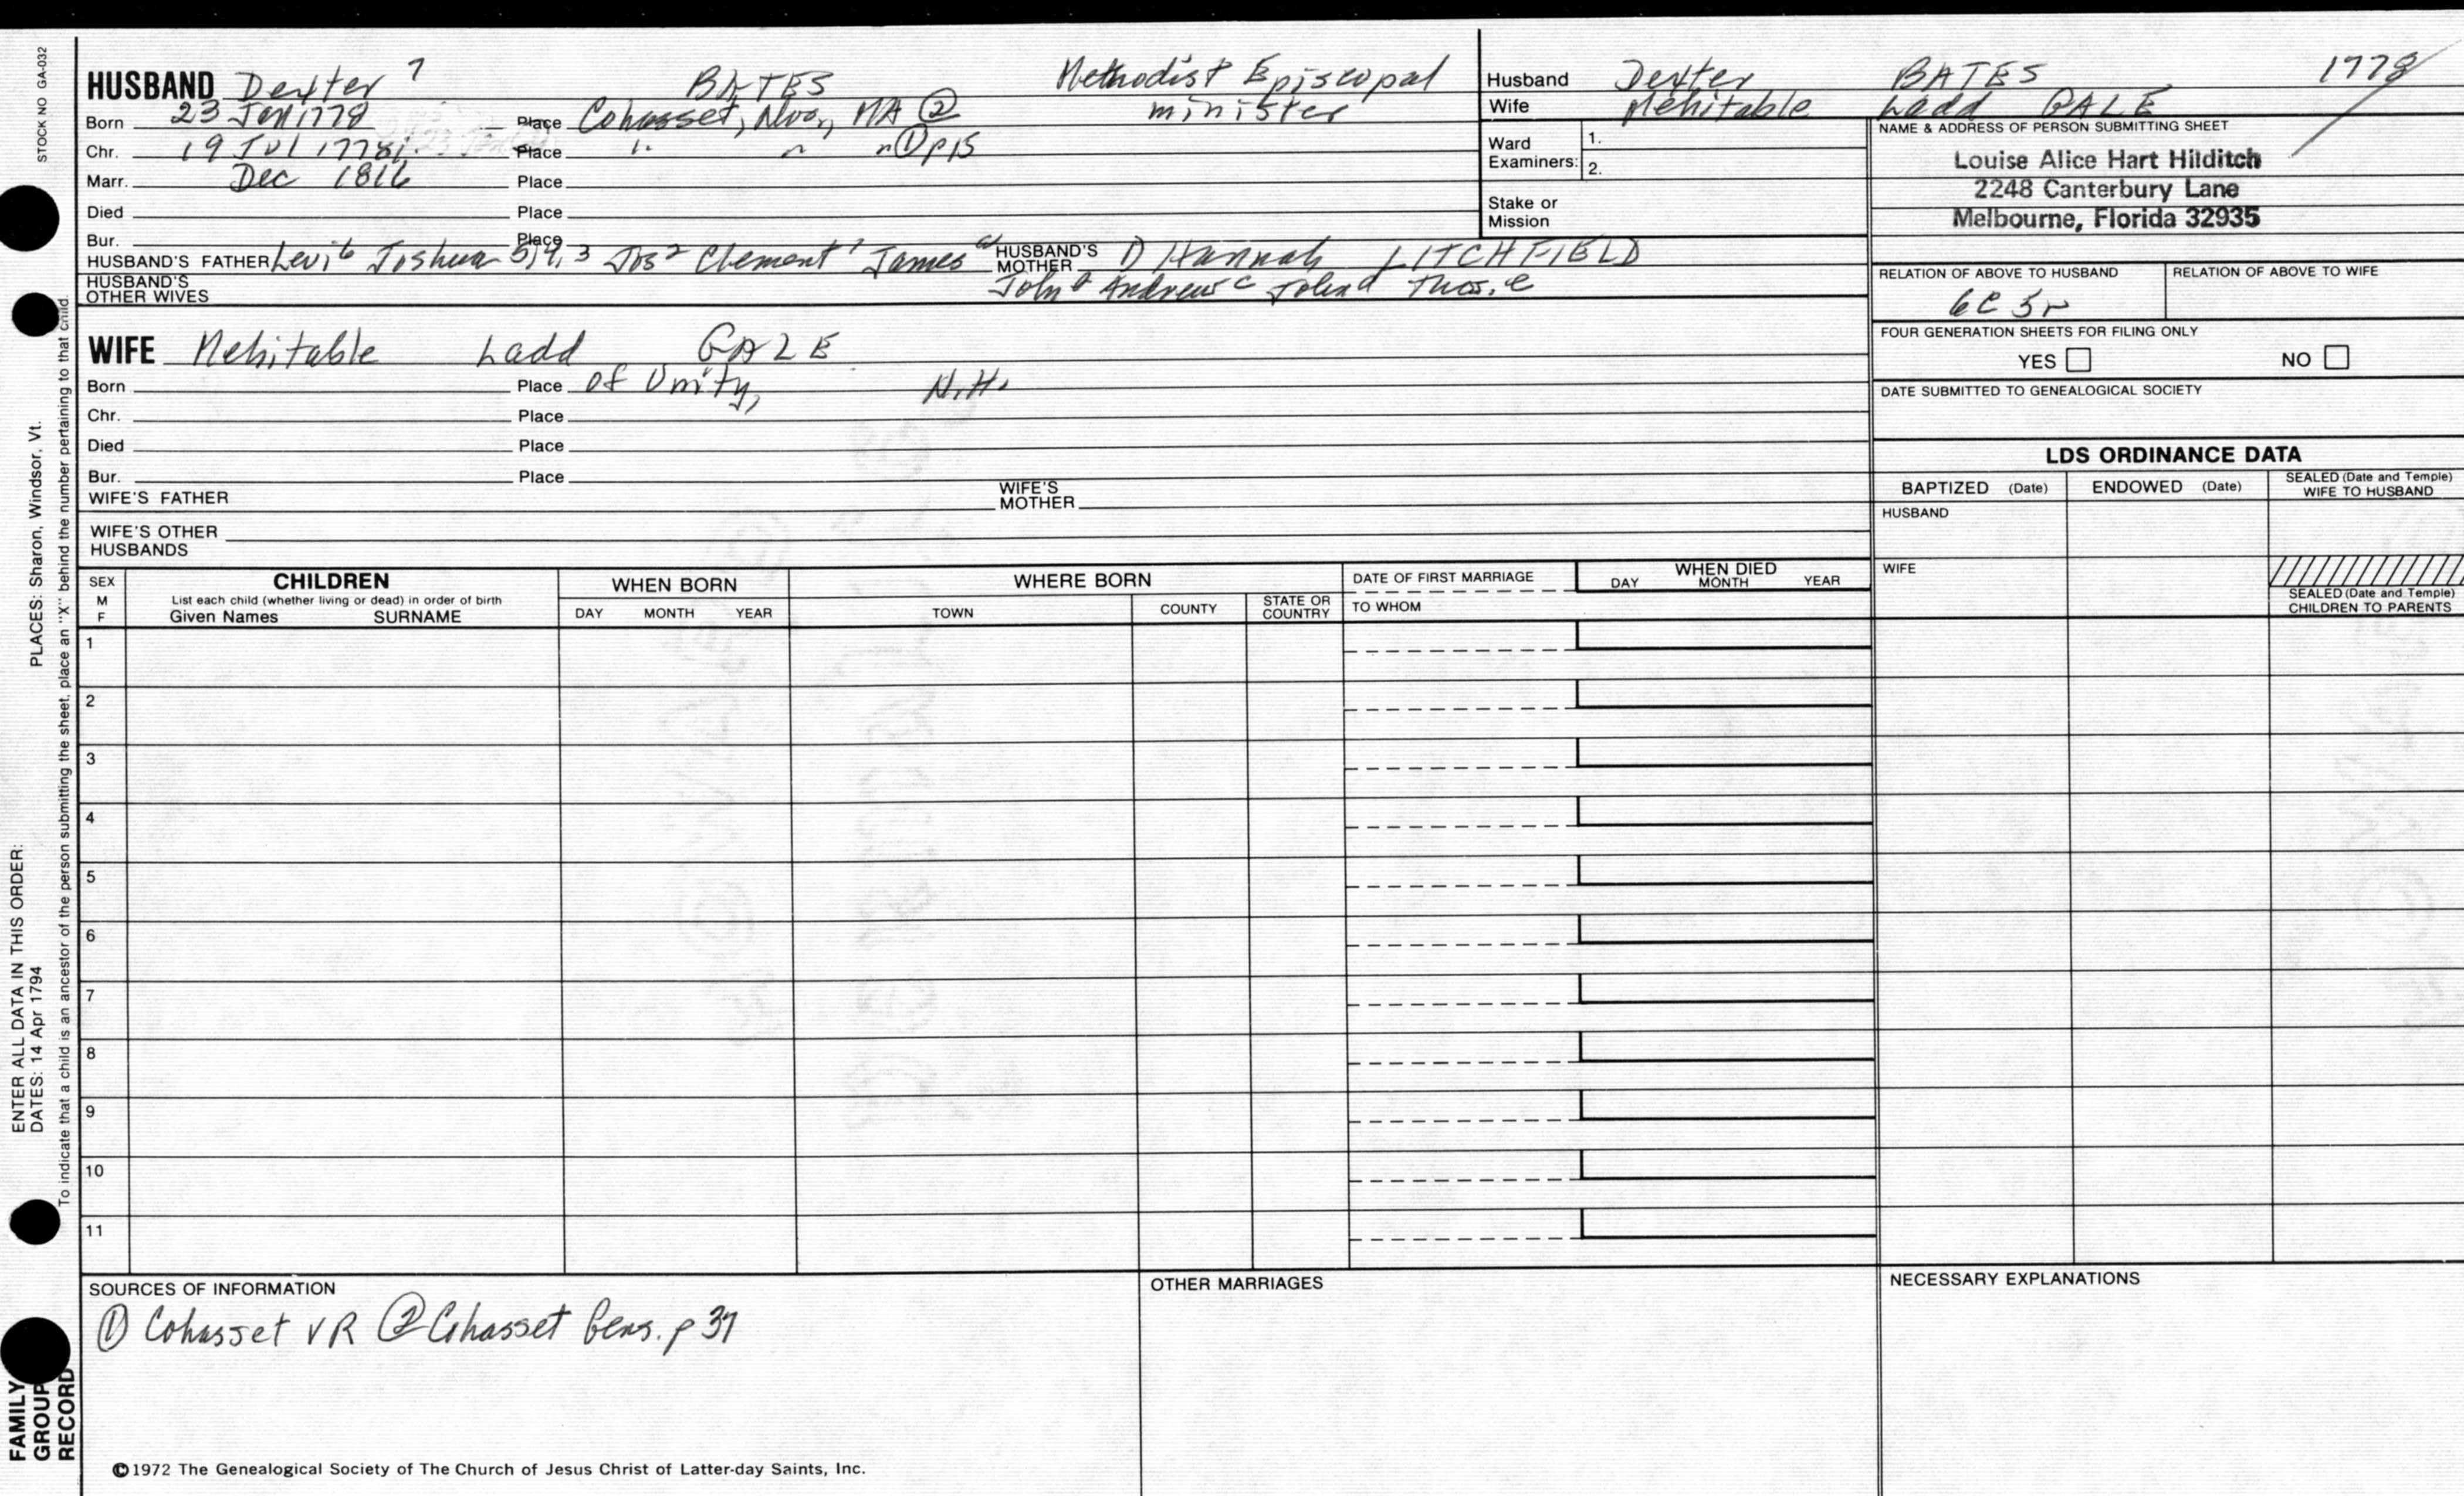 STOCK NO GA-032
PLACES: Sharon, Windsor, Vt.
ENTER ALL DATA IN THIS ORDER:
DATES: 14 Apr 1794
To indicate that a child is an ancestor of the person submitting the sheet, place an "X" behind the number pertaining to that child.
FAMILY GROUP RECORD
HUSBAND Dexter 7 BATES Methodist Episcopal minister
Born 23 Jan 1778 Place Cohasset, Nor, MA ②
Chr. 19 Jul 1778 Place " " " ① p15
Marr. Dec 1816 Place
Died Place
Bur. Place
HUSBAND'S FATHER Levi 6 Joshua 5, 4, 3 Jos 2 Clement 1 James a HUSBAND'S MOTHER D Hannah LITCHFIELD
HUSBAND'S OTHER WIVES John b Andrew c John d Thos. e
WIFE Mehitable Ladd GALE
Born Place of Unity, N.H.
Chr. Place
Died Place
Bur. Place
WIFE'S FATHER WIFE'S MOTHER
WIFE'S OTHER HUSBANDS
Husband Dexter BATES 1778
Wife Mehitable Ladd GALE
Ward Examiners: 1.
2.
Stake or Mission
NAME & ADDRESS OF PERSON SUBMITTING SHEET
Louise Alice Hart Hilditch
2248 Canterbury Lane
Melbourne, Florida 32935
RELATION OF ABOVE TO HUSBAND RELATION OF ABOVE TO WIFE
6C 5r
FOUR GENERATION SHEETS FOR FILING ONLY
YES NO
DATE SUBMITTED TO GENEALOGICAL SOCIETY
LDS ORDINANCE DATA
BAPTIZED (Date) ENDOWED (Date) SEALED (Date and Temple) WIFE TO HUSBAND
HUSBAND
WIFE
SEALED (Date and Temple) CHILDREN TO PARENTS
SEX M F
CHILDREN
List each child (whether living or dead) in order of birth
Given Names SURNAME
WHEN BORN
DAY MONTH YEAR
WHERE BORN
TOWN COUNTY STATE OR COUNTRY
DATE OF FIRST MARRIAGE
TO WHOM
WHEN DIED
DAY MONTH YEAR
1
2
3
4
5
6
7
8
9
10
11
SOURCES OF INFORMATION
① Cohasset VR ② Cohasset Gens. p 37
OTHER MARRIAGES
NECESSARY EXPLANATIONS
©1972 The Genealogical Society of The Church of Jesus Christ of Latter-day Saints, Inc.